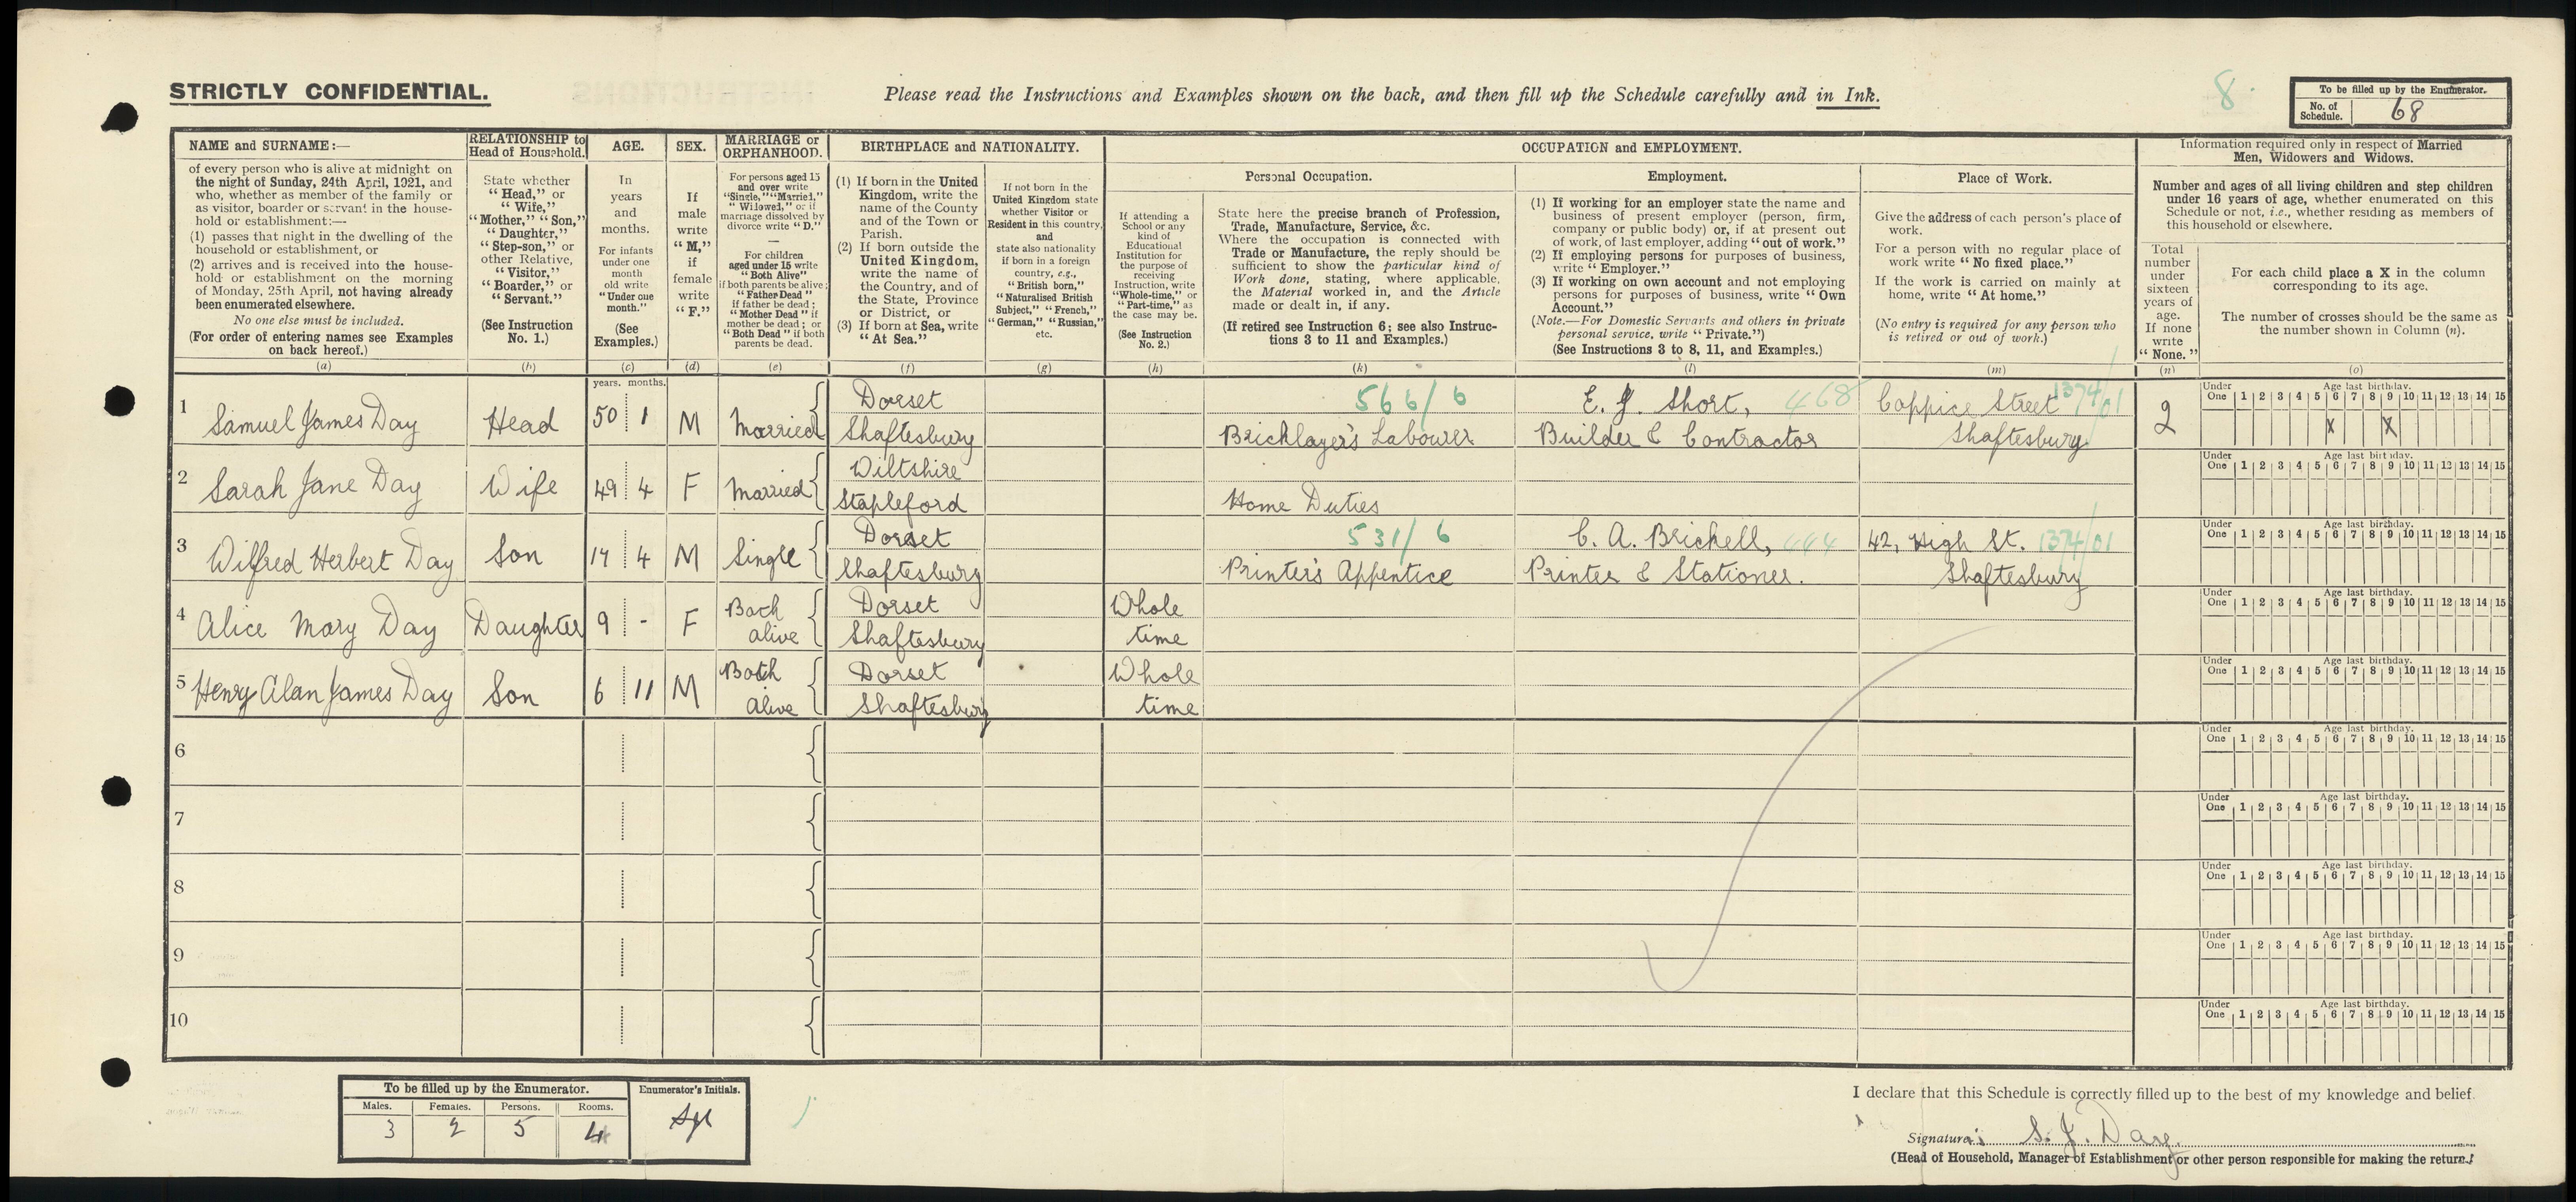 STRICTLY CONFIDENTIAL.
Please read the Instructions and Examples shown on the back, and then fill up the Schedule carefully and in Ink.
8
To be filled up by the Enumerator.
No. of Schedule. 68
NAME and SURNAME:—
of every person who is alive at midnight on
the night of Sunday, 24th April, 1921, and
who, whether as member of the family or
as visitor, boarder or servant in the house-
hold or establishment:—
(1) passes that night in the dwelling of the
household or establishment, or
(2) arrives and is received into the house-
hold or establishment on the morning
of Monday, 25th April, not having already
been enumerated elsewhere.
No one else must be included.
(For order of entering names see Examples
on back hereof.)
(a)
RELATIONSHIP to
Head of Household.
State whether
"Head," or
"Wife,"
"Mother," "Son,"
"Daughter,"
"Step-son," or
other Relative,
"Visitor,"
"Boarder," or
"Servant."
(See Instruction
No. 1.)
(b)
AGE.
In
years
and
months.
For infants
under one
month
old write
"Under one
month."
(See
Examples.)
(c)
years. months.
SEX.
If
male
write
"M,"
if
female
write
"F."
(d)
MARRIAGE or
ORPHANHOOD.
For persons aged 15
and over write
"Single," "Married,"
"Widowed," or if
marriage dissolved by
divorce write "D."
—
For children
aged under 15 write
"Both Alive"
if both parents be alive;
"Father Dead"
if father be dead;
"Mother Dead" if
mother be dead; or
"Both Dead" if both
parents be dead.
(e)
BIRTHPLACE and NATIONALITY.
(1) If born in the United
Kingdom, write the
name of the County
and of the Town or
Parish.
(2) If born outside the
United Kingdom,
write the name of
the Country, and of
the State, Province
or District, or
(3) If born at Sea, write
"At Sea."
(f)
If not born in the
United Kingdom state
whether Visitor or
Resident in this country,
and
state also nationality
if born in a foreign
country, e.g.,
"British born,"
"Naturalised British
Subject," "French,"
"German," "Russian,"
etc.
(g)
OCCUPATION and EMPLOYMENT.
If attending a
School or any
kind of
Educational
Institution for
the purpose of
receiving
Instruction, write
"Whole-time," or
"Part-time," as
the case may be.
(See Instruction
No. 2.)
(h)
Personal Occupation.
State here the precise branch of Profession,
Trade, Manufacture, Service, &c.
Where the occupation is connected with
Trade or Manufacture, the reply should be
sufficient to show the particular kind of
Work done, stating, where applicable,
the Material worked in, and the Article
made or dealt in, if any.
(If retired see Instruction 6; see also Instruc-
tions 3 to 11 and Examples.)
(k)
Employment.
(1) If working for an employer state the name and
business of present employer (person, firm,
company or public body) or, if at present out
of work, of last employer, adding "out of work."
(2) If employing persons for purposes of business,
write "Employer."
(3) If working on own account and not employing
persons for purposes of business, write "Own
Account."
(Note.—For Domestic Servants and others in private
personal service, write "Private.")
(See Instructions 3 to 8, 11, and Examples.)
(l)
Place of Work.
Give the address of each person's place of
work.
For a person with no regular place of
work write "No fixed place."
If the work is carried on mainly at
home, write "At home."
(No entry is required for any person who
is retired or out of work.)
(m)
Information required only in respect of Married
Men, Widowers and Widows.
Number and ages of all living children and step children
under 16 years of age, whether enumerated on this
Schedule or not, i.e., whether residing as members of
this household or elsewhere.
Total
number
under
sixteen
years of
age.
If none
write
"None."
(n)
For each child place a X in the column
corresponding to its age.
The number of crosses should be the same as
the number shown in Column (n).
(o)
1 Samuel James Day Head 50 1 M Married Dorset Shaftesbury 566/6 Bricklayer's Labourer E. J. Short, 468 Builder & Contractor Coppice Street 1374/01 Shaftesbury 2
Under One 1 2 3 4 5 6 7 8 9 10 11 12 13 14 15 Age last birthday.
X X
2 Sarah Jane Day Wife 49 4 F Married Wiltshire Stapleford Home Duties
Under One 1 2 3 4 5 6 7 8 9 10 11 12 13 14 15 Age last birthday.
3 Wilfred Herbert Day Son 17 4 M Single Dorset Shaftesbury 531/6 Printer's Appentice C. A. Brickell, 444 Printer & Stationer. 42, High St. 1374/01 Shaftesbury
Under One 1 2 3 4 5 6 7 8 9 10 11 12 13 14 15 Age last birthday.
4 Alice Mary Day Daughter 9 - F Both alive Dorset Shaftesbury Whole time
Under One 1 2 3 4 5 6 7 8 9 10 11 12 13 14 15 Age last birthday.
5 Henry Alan James Day Son 6 11 M Both alive Dorset Shaftesbury Whole time
Under One 1 2 3 4 5 6 7 8 9 10 11 12 13 14 15 Age last birthday.
6
Under One 1 2 3 4 5 6 7 8 9 10 11 12 13 14 15 Age last birthday.
7
Under One 1 2 3 4 5 6 7 8 9 10 11 12 13 14 15 Age last birthday.
8
Under One 1 2 3 4 5 6 7 8 9 10 11 12 13 14 15 Age last birthday.
9
Under One 1 2 3 4 5 6 7 8 9 10 11 12 13 14 15 Age last birthday.
10
Under One 1 2 3 4 5 6 7 8 9 10 11 12 13 14 15 Age last birthday.
To be filled up by the Enumerator.
Males. Females. Persons. Rooms.
3 2 5 4
Enumerator's Initials.
I declare that this Schedule is correctly filled up to the best of my knowledge and belief.
Signature S. J. Day.
(Head of Household, Manager of Establishment or other person responsible for making the return.)